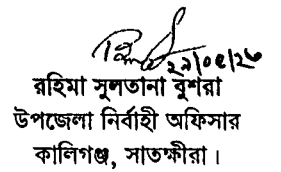 ২৯/০৫/২৩
রহিমা সুলতানা বুশরা
উপজেলা নির্বাহী অফিসার
কালিগঞ্জ, সাতক্ষীরা।